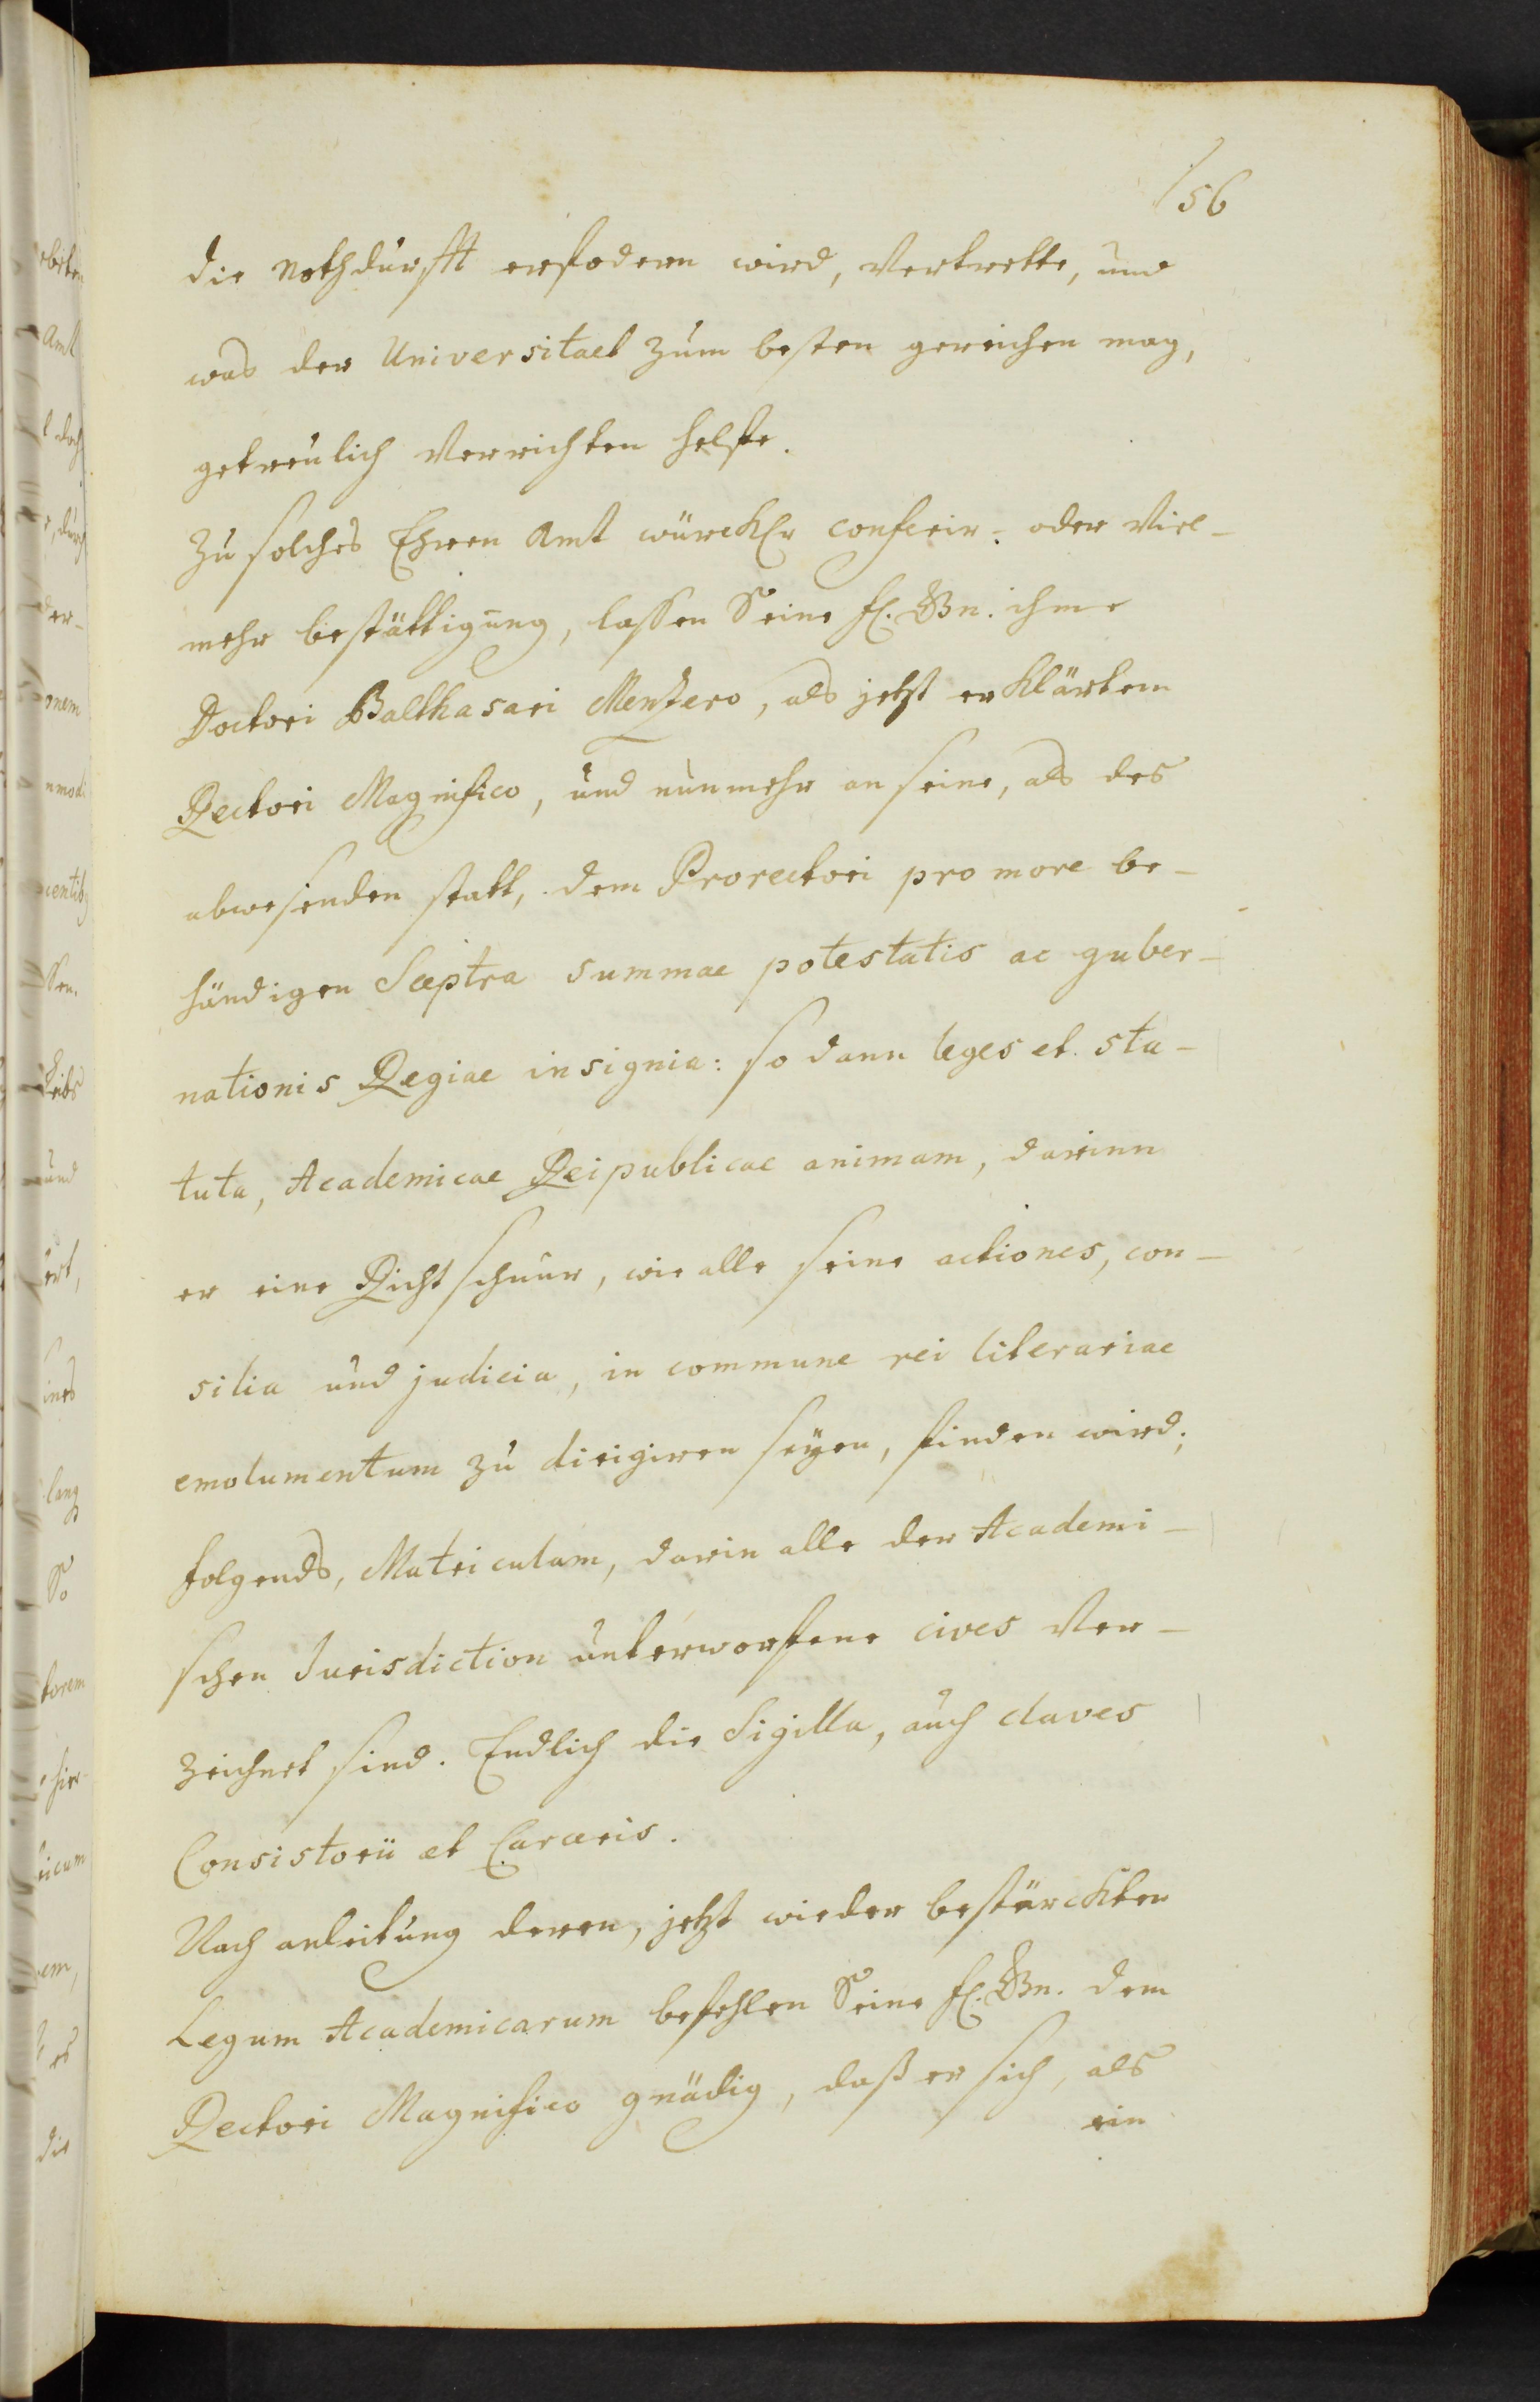 156
die Nothdurfft erfodern wird, Vertrette, und
was der Universitaet zum besten gereichen mag,
getreulich Verrichten helffe.
Zu solches Ehren Amt würckl. conferir- oder Viel-
mehr bestättigung, lassen Seine fl. Gn. ihme
Doctori Balthasari Menzero, als jetzt erklärtem
Rectori Magnifico, und nunmehr an seine, als des
abwesenden statt, dem Prorectori pro more be-
händigen Sceptra summae potestatis ac guber-
nationis Regiae insignia: so dann leges et sta-
tuta, Academicae Reipublicae animam, darinn
er eine Richtschnur, wie alle seine actiones, con-
silia und judicia, in commune rei literariae
emolumentum zu dirigiren seyen, finden wird;
folgends, Matriculam, darin alle der Academi-
schen Jurisdiction unterworffene cives Ver-
zeichnet sind. Endlich die Sigilla, auch claves
Consistorii et Carceris.
Nach anleitung deren, jetzt wieder bestärckten
Legum Academicarum befehlen Seine fl. Gn. dem
Rectori Magnifico gnädig, daß er sich, als
ein